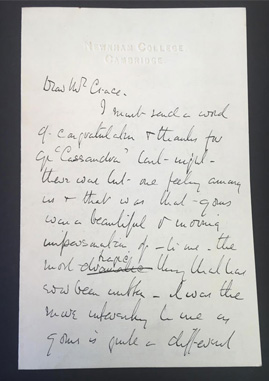 NEWNHAM COLLEGE
CAMBRIDGE
Dear Mr Grace.
I must send a word
of congratulation & thanks for
"Cassandra" last night -
there was but one feeling among
us & that was that yours
was a beautiful & moving
impersonation of - to me - the
most dramatic tragic thing that has
ever been written - it was the
more interesting to me as
yours is quite a different